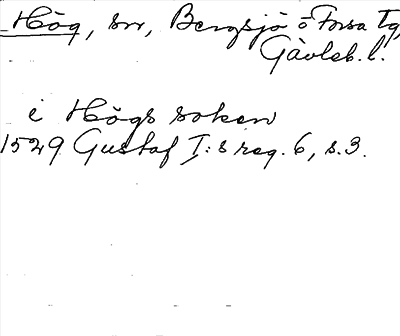 Hög, sn, Bergsjö o Forsa tg,
Gävleb. l.
i Högs soken
1529 Gustaf I:s reg. 6, s. 3.